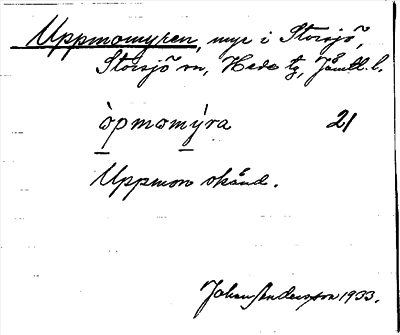 Uppmomyren, myr i Storsjö,
Storsjö sn, Hede tg, Jämtl. l.
òpmomýra 21
Uppmon okänd.
Johan Andersson 1933.